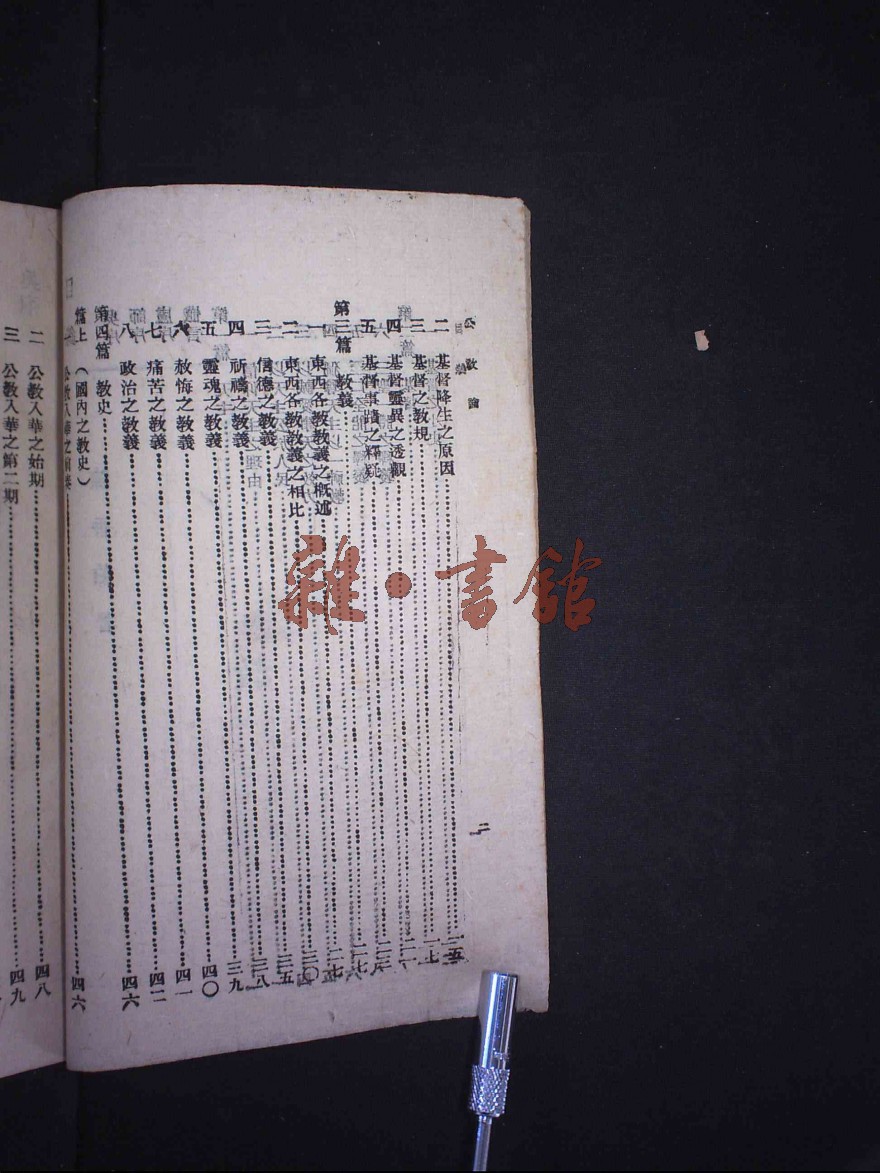 公教論
二 基督降生之原因
三 基督之教規
四 基督靈異之透觀
五 基督事蹟之釋疑
第三篇 教義 二七
一 東西各教教義之概述 三〇
二 東西各教教義之相比 三五
三 信德之教義 三八
四 祈禱之教義 三九
五 靈魂之教義 四〇
六 赦悔之教義 四一
七 痛苦之教義 四二
八 政治之教義 四六
第四篇 教史
篇上(國內之教史)
一 公教入華之 四六
二 公教入華之始期 四八
三 公教入華之第二期 四九
二
雜·書館